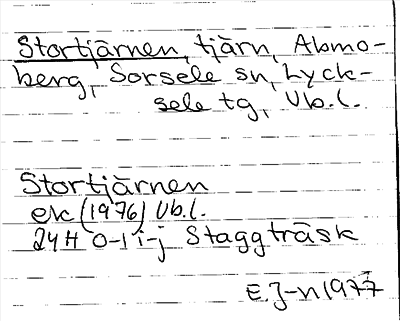 Stortjärnen, tjärn, Abmo-
berg, Sorsele sn, Lyck-
sele tg, Vb.l.
Stortjärnen
ek (1976) Vb.l.
24H 0-1 i-j Staggträsk
E.J-n 1977